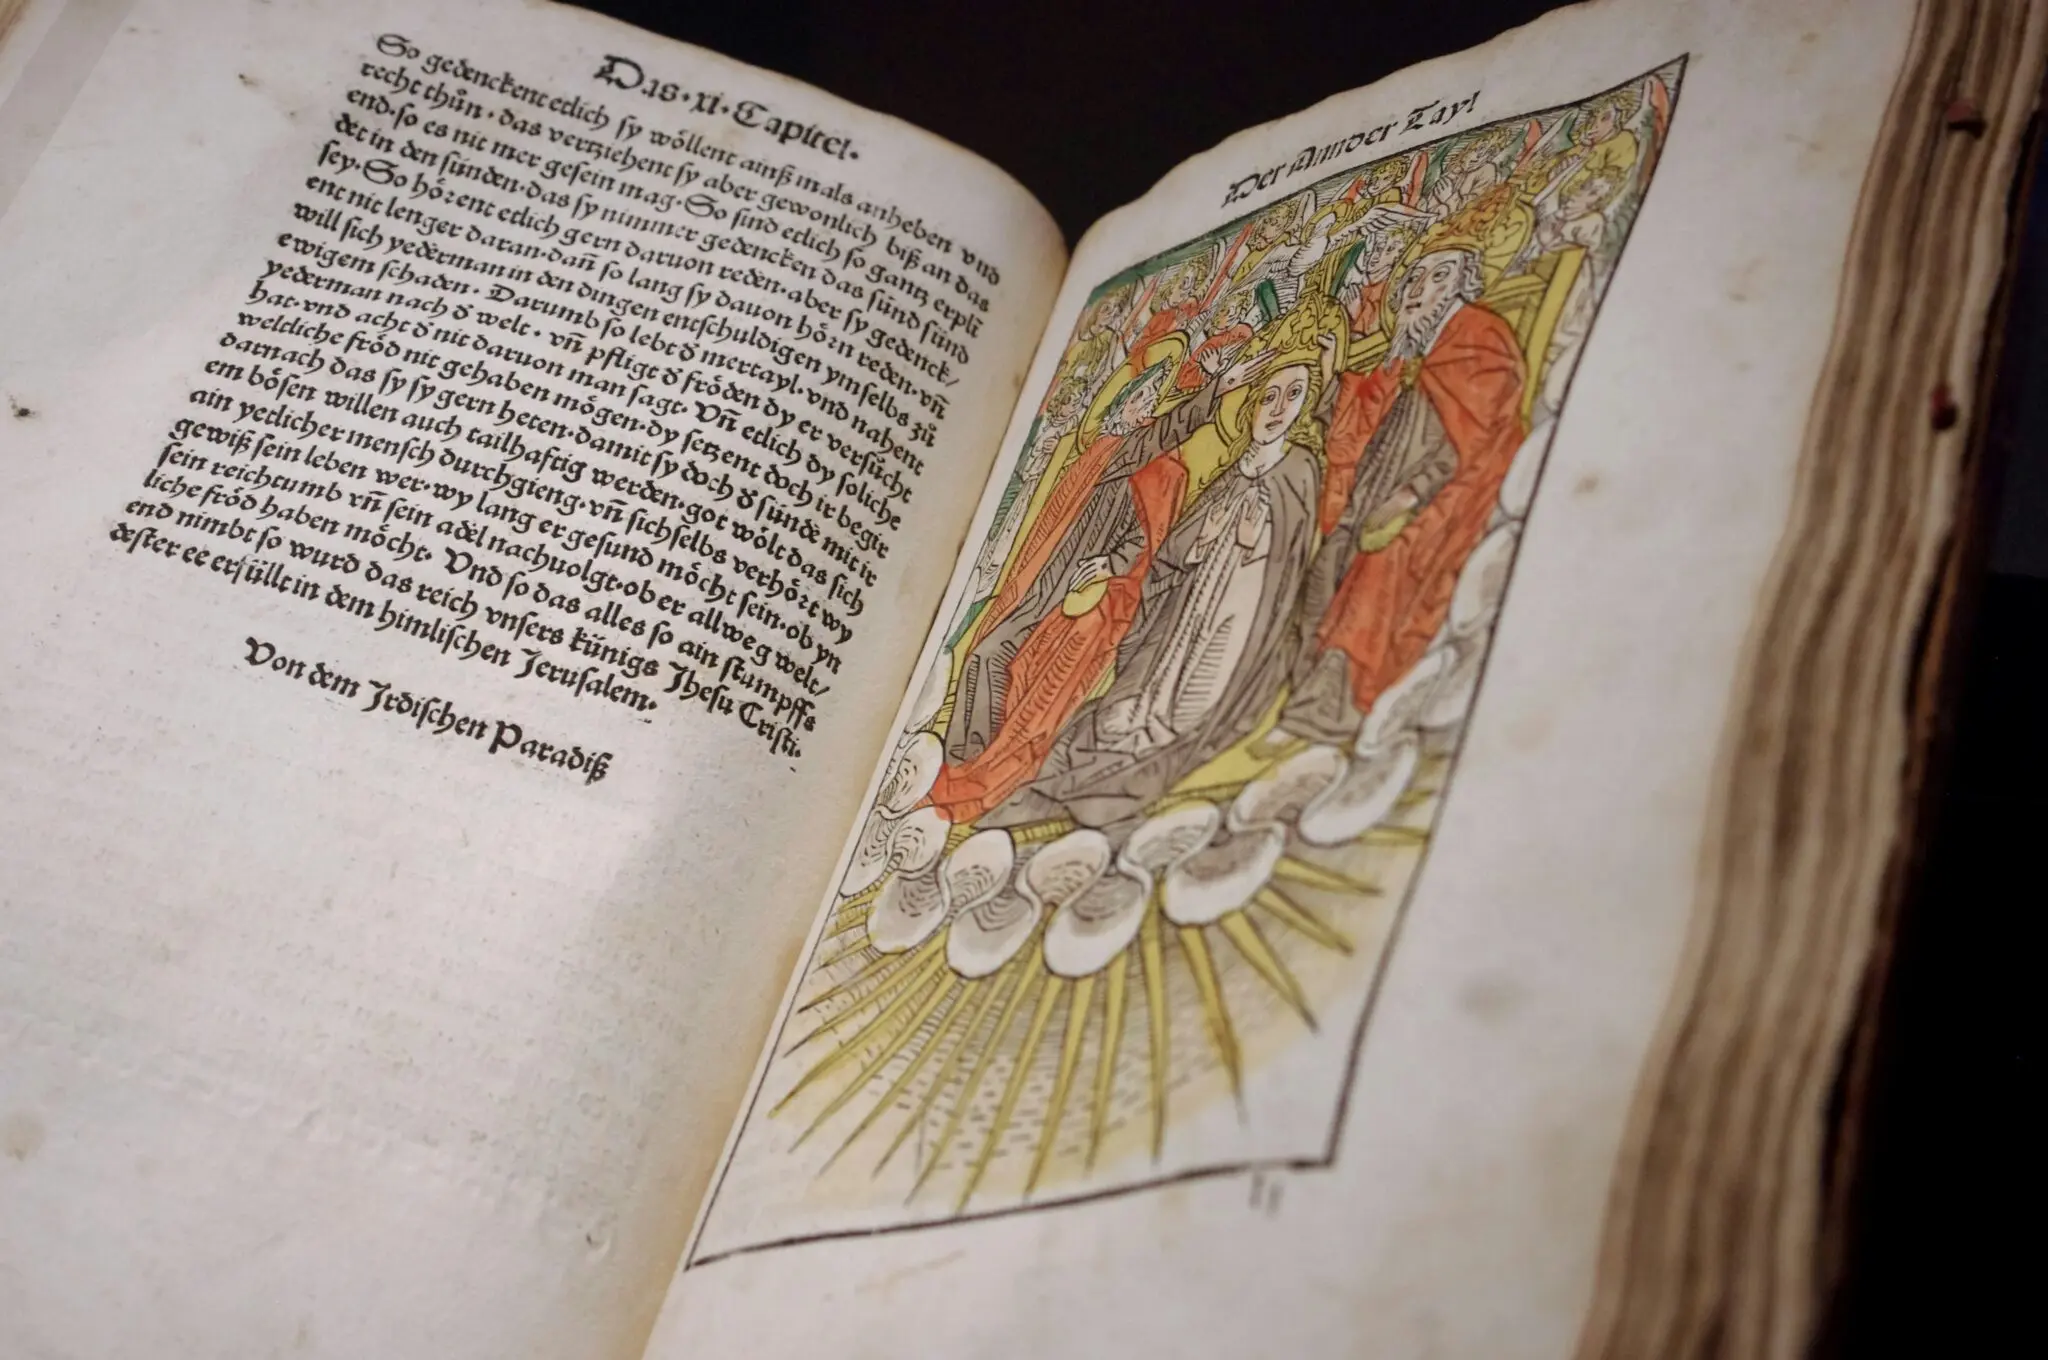 Das·xi·Capitel·
So gedenckent etlich sy wöllent ainß mals anheben vnd
recht thůn·das vertziehent sy aber gewonlich biß an das
end·so es nit mer gesein mag·So sind etlich so gantz erplī
det in den sünden·das sy nimmer gedencken das sünd sünd
sey·So hörent etlich gern daruon reden·aber sy gedenck/
ent nit lenger daran·dañ so lang sy dauon hörn reden·vñ
will sich yederman in den dingen entschuldigen ym selbs zů
ewigem schaden·Darumb so lebt đ mertayl·vnd nahent
yederman nach đ welt·vñ pfligt đ fröden dy er versücht
hat·vnd acht đ nit daruon man sagt·Vñ etlich dy soliche
weltliche fröd nit gehaben mögen·dy setzent doch ir begir
darnach das sy sy gern heten·damit sy doch đ sünde mit ir
em bösen willen auch tailhaftig werden·got wölt das sich
ain yetlicher mensch durchgieng·vñ sich selbs verhört wy
gewiß sein leben wer·wy lang er gesund möcht sein·ob yn
sein reichtumb vñ sein adel nachuolgt·ob er allweg welt/
liche fröd haben möcht·Vnd so das alles so ain stumpffs
end nimbt so wurd das reich vnsers künigs Jhesu Cristi·
dester ee erfüllt in dem himlischen Jerusalem·
Von dem Jrdischen Paradiß
Der Annder Tayl